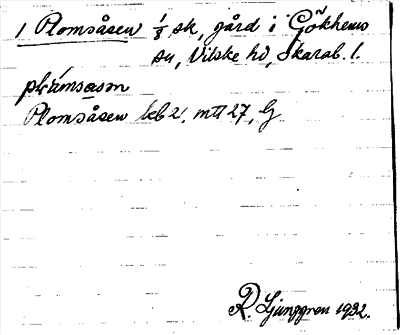 1 Plomsåsen 1/8 sk, gård i Gökhems
sn, Vilske hd, Skarab. l.
Plomsåsen kb 2. mtl 27, G
R. Ljunggren 1932.